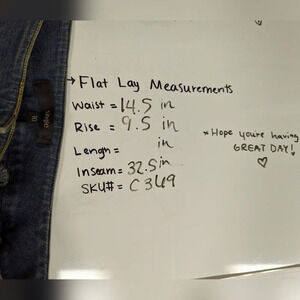 → Flat Lay Measurements
Waist = 14.5 in
Rise = 9.5 in
Lengh = in
Inseam = 32.5 in
SKU# = C349
* Hope you're having
GREAT DAY!
♡